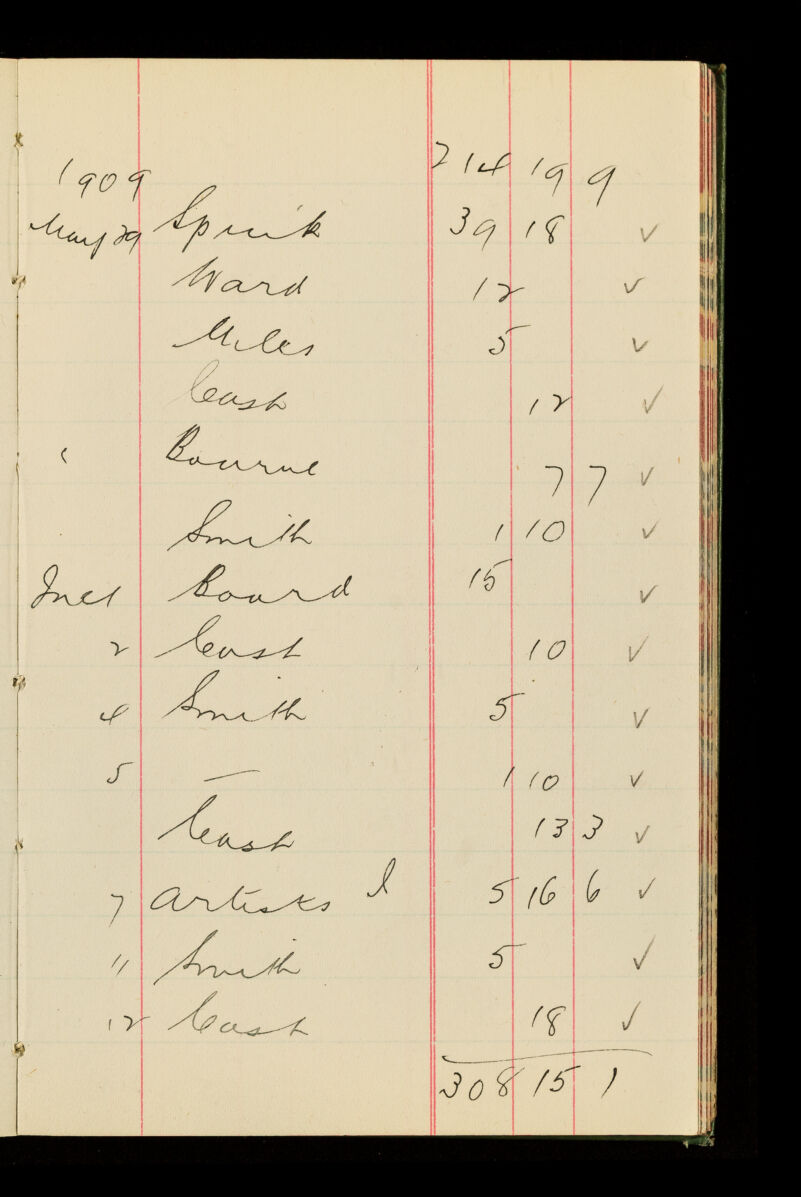 1909 214 19 9
May 29 Spink 39 18 ✓
Ward 12 ✓
Miles 5 ✓
Cash 12 ✓
" Bourne 7 7 ✓
Smith 1 10 ✓
Jne 1 Board 15 ✓
2 Cash 10 ✓
4 Smith 5 ✓
5 — 1 10 ✓
Cash 13 3 ✓
7 Artists 5 16 6 ✓
11 Smith 5 ✓
12 Cash 18 ✓
308 15 1